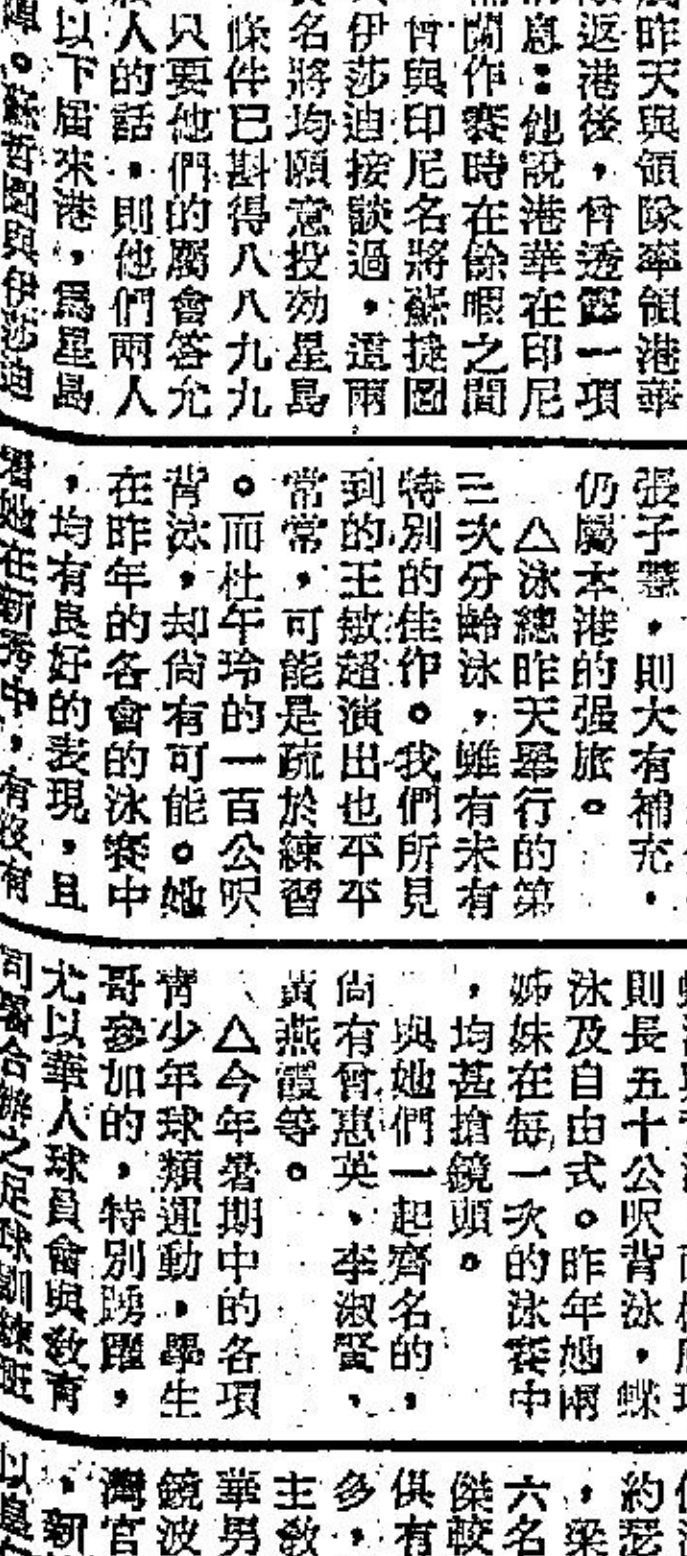 昨天與領隊率領港華
返港後,曾透露一項
息:他說港華在印尼
作賽時在餘暇之間
曾與印尼名將蘇捷圖
伊莎迪接談過,這兩
名將均願意投効星島
條件已斟得八八九九
只要他們的屬會答允
人的話,則他們兩人
以下屆來港,爲星島
。蘇哲圖與伊莎迪
張子慧,則大有補充,
仍屬本港的强旅。
△泳總昨天舉行的第
三次分齡泳,雖有未有
特別的佳作。我們所見
到的王敏超演出也平平
常常,可能是疏於練習
。而杜午玲的一百公呎
背泳,却尙有可能。她
在昨年的各會的泳賽中
,均有良好的表現,且
她在新秀中,有沒有
則長五十公呎背泳,蝶
泳及自由式。昨年她兩
姊妹在每一次的泳賽中
,均甚搶鏡頭。
與她們一起齊名的,
尙有曾惠英、李淑賢、
黃燕霞等。
△今年暑期中的各項
靑少年球類運動,學生
哥參加的,特別踴躍,
尤以華人球員會與敎育
司署合辦之足球訓練班
約瑟
,梁
六名
傑較
俱有
多,
主敎
華男
鏡波
灣官
,新
以